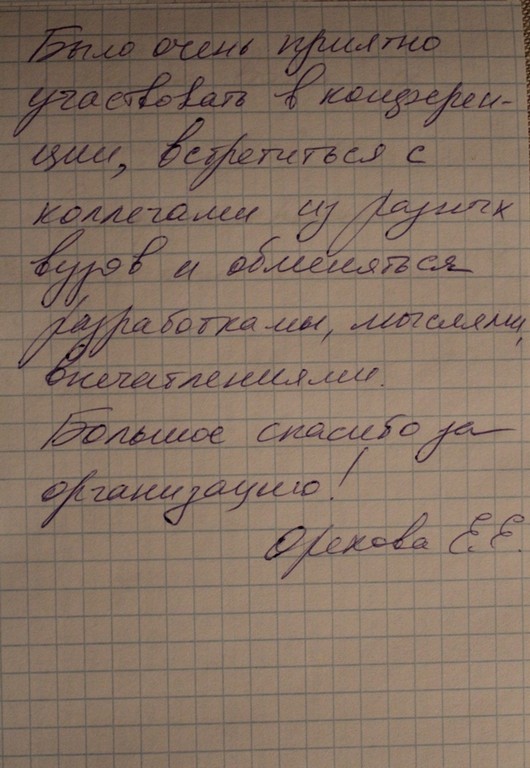 Было очень приятно
участвовать в конферен-
ции, встретиться с
коллегами из разных
вузов и обменяться
разработками, мыслями,
впечатлениями.
Большое спасибо за
организацию!
Орехова Е.Е.